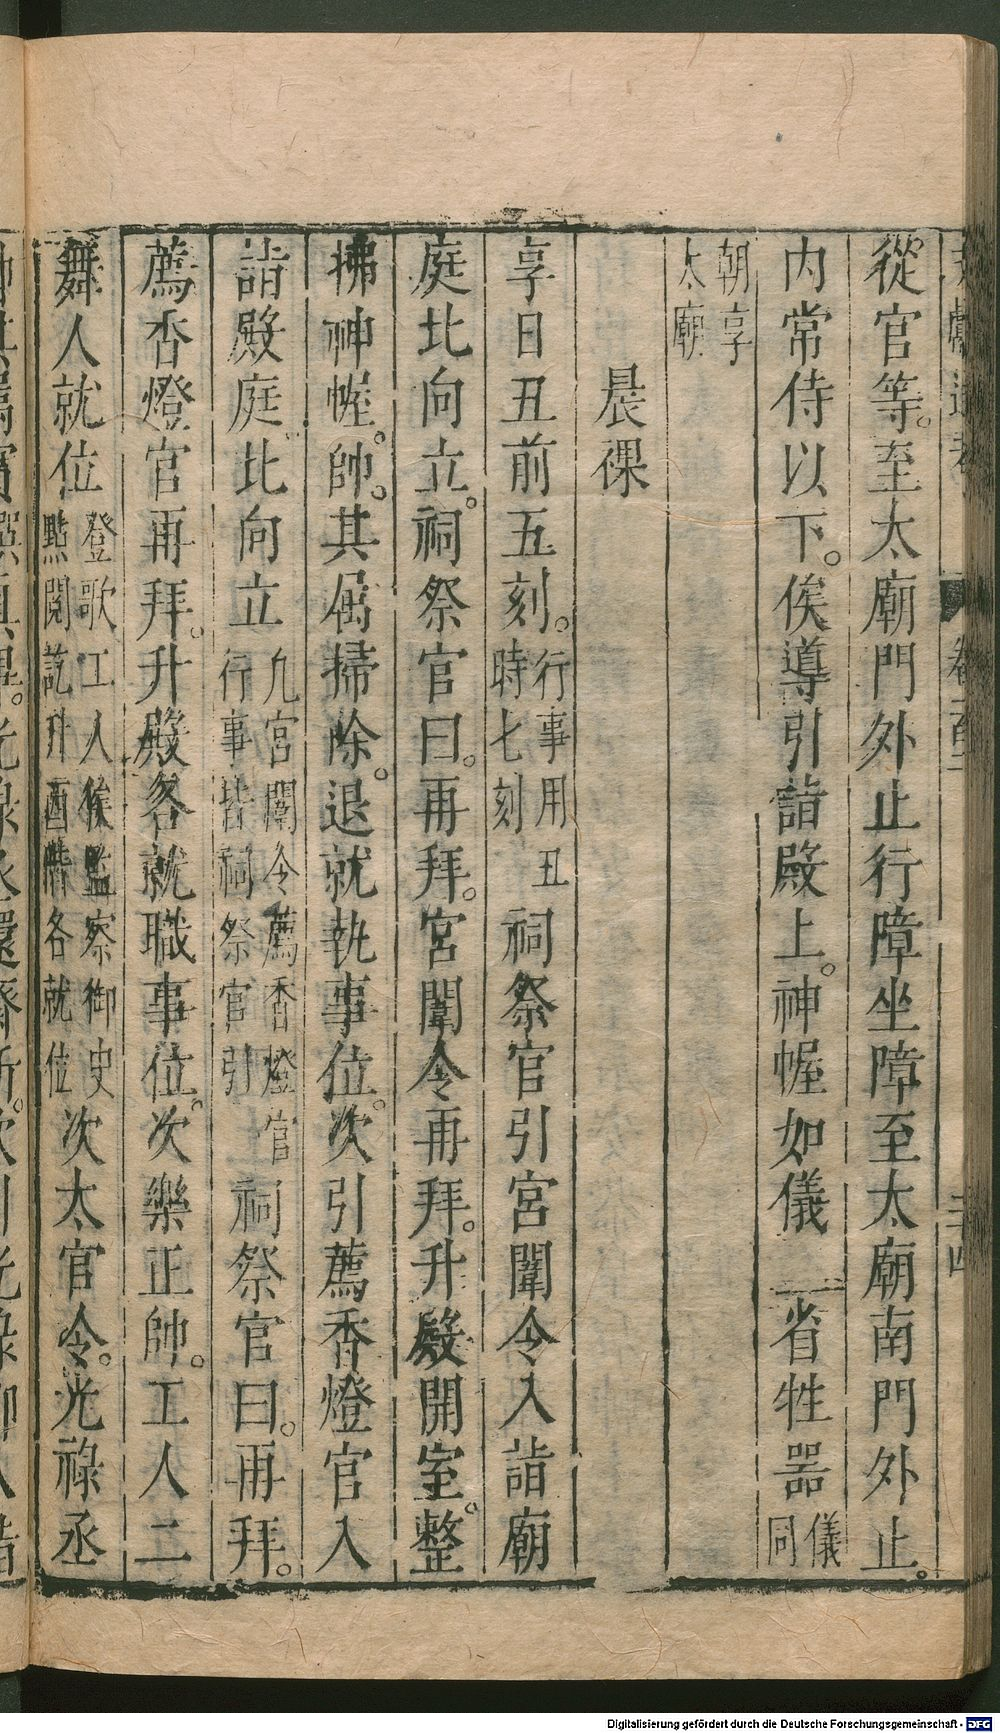 從官等至太廟門外止行障坐障至太廟南門外止
內常侍以下俟導引詣殿上神幄如儀　一省牲器儀同
朝享太廟
晨祼
享日丑前五刻行事用丑時七刻祠祭官引宮闈令入詣廟
庭北向立祠祭官曰再拜宮闈令再拜升殿開室整
拂神幄帥其属掃除退就執事位次引薦香燈官入
詣殿庭北向立九宮闈令薦香燈官行事皆祠祭官引上祠祭官曰再拜
薦香燈官再拜升殿各就職事位次樂正帥工人二
舞人就位登歌工人俟監察御史點閱訖升西階各就位次太官令光祿丞
Digitalisierung gefördert durch die Deutsche Forschungsgemeinschaft - DFG